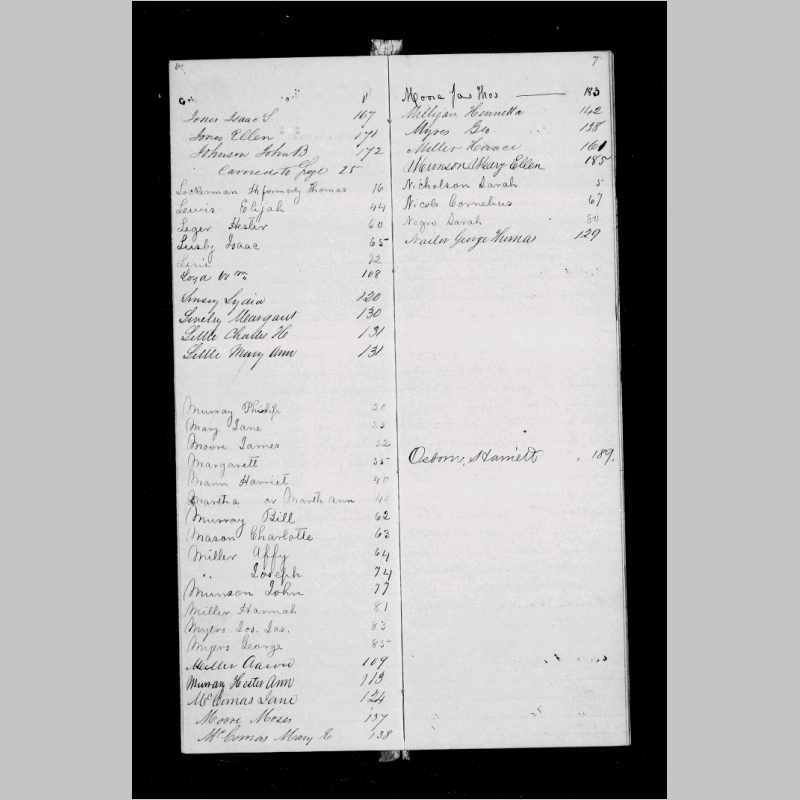 Jones Isaac S. 167
Jones Ellen 171
Johnson John B. 172
Carried to Page 25
Lockerman H formerly Thomas 16
Lewis Elijah 44
Leger Hester 60
Lusby Isaac 65
72
Loyd Wm 108
Linsey Lydia 120
Lively Margaret 130
Little Charles H 131
Little Mary Ann 131
Murray Philip 20
Mary Jane 23
Moore James 32
Margarett 35
Mann Harriet 40
Martha or Marth Ann 40
Murray Bill 62
Mason Charlotte 63
Miller Affy 64
" Joseph 74
Munson John 77
Miller Hannah 81
Myers Jos. Jas. 83
Myers George 85
Miller Aaron 109
Murray Hester Ann 113
McComas Jane 124
Moore Moses 137
McComas Mary E 138
7
Moore Jas Thos 183
Milligan Henrietta 142
Myres Geo 138
Miller Horace 161
Munson Mary Ellen 185
Nicholson Sarah 5
Nicols Cornelius 67
Negro Sarah 80
Nailor George Thomas 129
Osborn, Harriett 189.